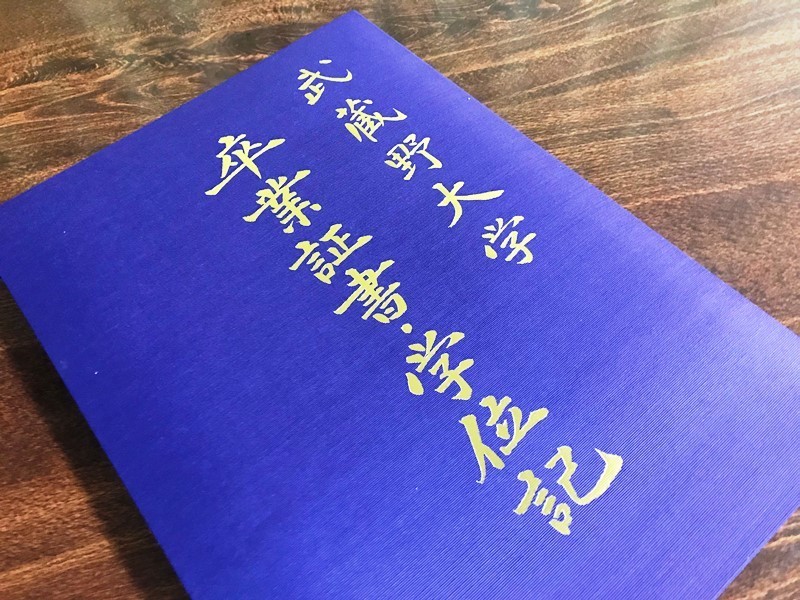 武蔵野大学
卒業証書・学位記